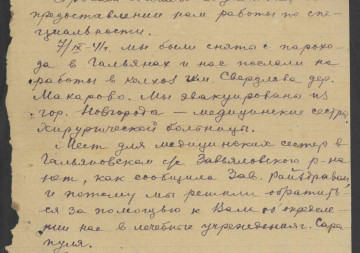 предоставлении нам работы по спе-
циальности.
7/IX-41г. мы были сняты с парохо-
да в Гальянах и нас послали на
работы в колхоз им. Свердлова дер.
Макарово. Мы эвакуированы из
гор. Новгорода — медицинские сестры
хирургической больницы.
Мест для медицинских сестер в
Гальяновском с/с Завьяловского р-на
нет, как сообщила Зав. Райздравом,
и потому мы решили обратить-
ся за помощью к Вам об определе-
нии нас в лечебные учреждения г. Сара-
пуля.